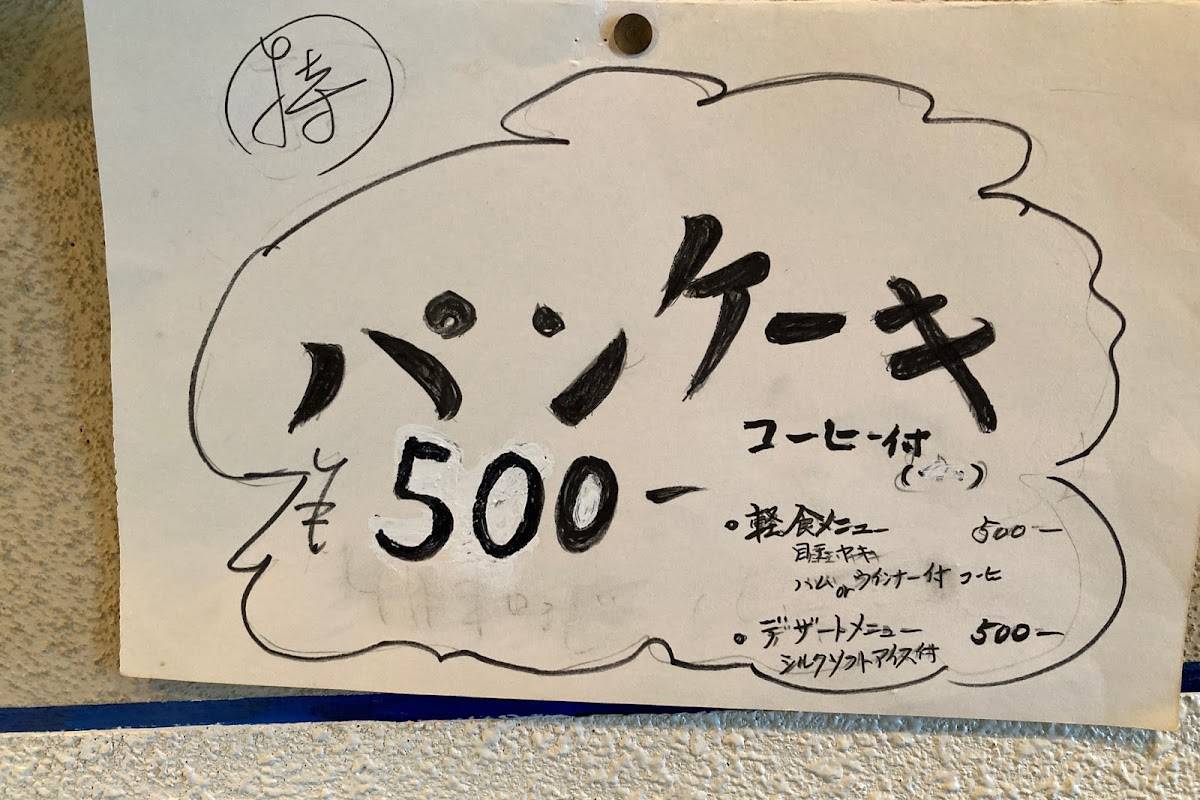 持
パンケーキ
¥500-
コーヒー付
• 軽食メニュー 500-
目玉ヤキ
ハムorウインナー付 コーヒ
• デザートメニュー 500-
シルクソフトアイス付